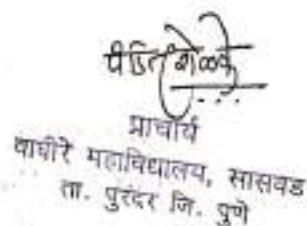 पंडित शेळके
प्राचार्य
वाघीरे महाविद्यालय, सासवड
ता. पुरंदर जि. पुणे